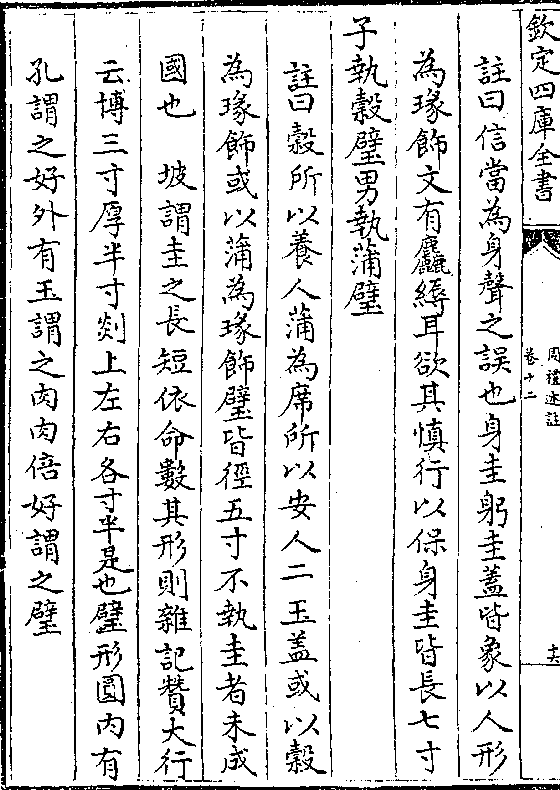 欽定四庫全書
周禮述註
卷十二
十六
註曰信當為身聲之誤也身圭躬圭蓋皆象以人形
為瑑飾文有麤縟耳欲其慎行以保身圭皆長七寸
子執穀璧男執蒲璧
註曰穀所以養人蒲為席所以安人二玉盖或以穀
為瑑飾或以蒲為瑑飾璧皆徑五寸不執圭者未成
國也　坡謂圭之長短依命數其形則雜記贊大行
云博三寸厚半寸剡上左右各寸半是也璧形圓内有
孔謂之好外有玉謂之肉肉倍好謂之璧